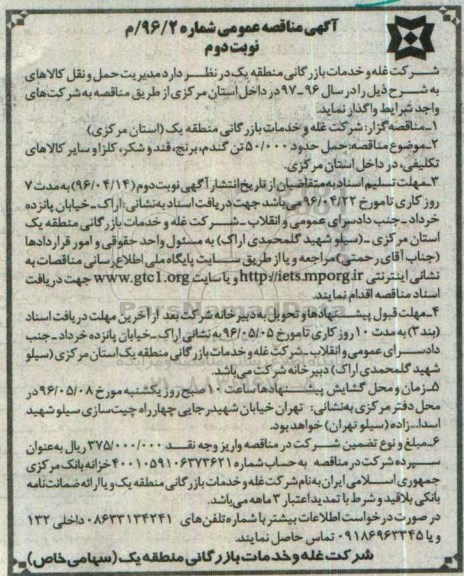 آگهی مناقصه عمومی شماره ۹۶/۲/م
نوبت دوم
شرکت غله و خدمات بازرگانی منطقه یک در نظر دارد مدیریت حمل و نقل کالاهای
به شرح ذیل را در سال ۹۶-۹۷ در داخل استان مرکزی از طریق مناقصه به شرکت‌های
واجد شرایط واگذار نماید.
۱-مناقصه‌گزار: شرکت غله و خدمات بازرگانی منطقه یک (استان مرکزی)
۲-موضوع مناقصه: حمل حدود ۵۰/۰۰۰ تن گندم، برنج، قند و شکر، کلزا و سایر کالاهای
تکلیفی، در داخل استان مرکزی.
۳-مهلت تسلیم اسناد به متقاضیان از تاریخ انتشار آگهی نوبت دوم (۹۶/۰۴/۱۴) به مدت ۷
روز کاری تا مورخ ۹۶/۰۴/۲۲ می‌باشد جهت دریافت اسناد به نشانی: اراک-خیابان پانزده
خرداد-جنب دادسرای عمومی و انقلاب-شرکت غله و خدمات بازرگانی منطقه یک
استان مرکزی-(سیلو شهید گلمحمدی اراک) به مسئول واحد حقوقی و امور قراردادها
(جناب آقای رحمتی) مراجعه و یا از طریق سایت پایگاه ملی اطلاع‌رسانی مناقصات به
نشانی اینترنتی http://iets.mporg.ir و یا سایت www.gtc1.org جهت دریافت
اسناد مناقصه اقدام نمایند.
۴-مهلت قبول پیشنهادها و تحویل به دبیرخانه شرکت بعد از آخرین مهلت دریافت اسناد
(بند ۳) به مدت ۱۰ روز کاری تا مورخ ۹۶/۰۵/۰۵ به نشانی اراک-خیابان پانزده خرداد-جنب
دادسرای عمومی و انقلاب-شرکت غله و خدمات بازرگانی منطقه یک استان مرکزی (سیلو
شهید گلمحمدی اراک) دبیرخانه شرکت می‌باشد.
۵-زمان و محل گشایش پیشنهادها ساعت ۱۰ صبح روز یکشنبه مورخ ۹۶/۰۵/۰۸ در
محل دفتر مرکزی به نشانی: تهران خیابان شهید رجایی چهارراه چیت‌سازی سیلو شهید
اسدا...زاده (سیلو تهران) خواهد بود.
۶-مبلغ و نوع تضمین شرکت در مناقصه واریز وجه نقد ۳۷۵/۰۰۰/۰۰۰ ریال به عنوان
سپرده شرکت در مناقصه به حساب شماره ۴۰۰۱۰۵۹۱۰۶۳۷۳۶۲۱ خزانه بانک مرکزی
جمهوری اسلامی ایران به نام شرکت غله و خدمات بازرگانی منطقه یک و یا ارائه ضمانت‌نامه
بانکی بلاقید و شرط با تمدید اعتبار ۳ ماهه می‌باشد.
در صورت درخواست اطلاعات بیشتر با شماره تلفن‌های ۰۸۶۳۳۱۳۴۲۴۱ داخلی ۱۳۲
و یا ۰۹۱۸۶۹۶۳۳۴۵ تماس حاصل نمایند.
شرکت غله و خدمات بازرگانی منطقه یک (سهامی خاص)